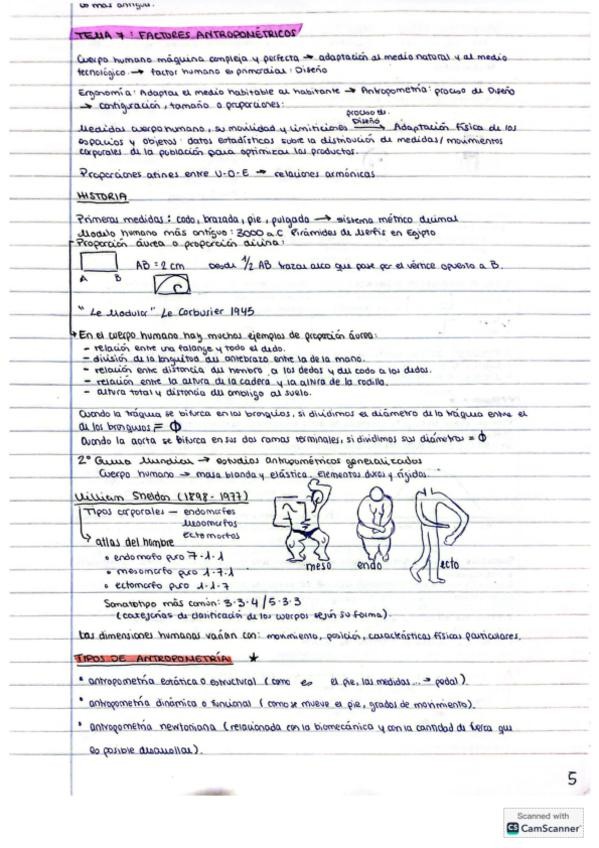 lo más antiguo.
TEMA 7: FACTORES ANTROPOMÉTRICOS
Cuerpo humano máquina compleja y perfecta → adaptación al medio natural y al medio
tecnológico → factor humano es primordial: Diseño
Ergonomía: Adaptar el medio habitable al habitante → Antropometría: proceso de Diseño
→ configuración, tamaño o proporciones:
proceso de
Diseño
Medidas cuerpo humano, su movilidad y limitaciones → Adaptación física de los
espacios y objetos: datos estadísticos sobre la distribución de medidas/movimientos
corporales de la población para optimizar los productos.
Proporciones afines entre U-O-E → relaciones armónicas
HISTORIA
Primeras medidas: codo, brazada, pie, pulgada → sistema métrico decimal
Modelo humano más antiguo: 3000 a.C Pirámides de Menfis en Egipto
Proporción áurea o proporción divina:
AB = 2 cm Desde 1/2 AB trazas arco que pase por el vértice opuesto a B.
A B
"Le Modulor" Le Corbusier 1945
→ En el cuerpo humano hay muchos ejemplos de proporción áurea:
- relación entre una falange y todo el dedo.
- división de la longitud del antebrazo entre la de la mano.
- relación entre distancia del hombro a los dedos y del codo a los dedos.
- relación entre la altura de la cadera y la altura de la rodilla.
- altura total y distancia del ombligo al suelo.
Cuando la tráquea se bifurca en los bronquios, si dividimos el diámetro de la tráquea entre el
de los bronquios = Φ
Cuando la aorta se bifurca en sus dos ramas terminales, si dividimos sus diámetros = Φ
2º Guerra Mundial → estudios antropométricos generalizados
Cuerpo humano → masa blanda y elástica. Elementos duros y rígidos.
William Sheldon (1898-1977)
Tipos corporales — endomorfos
mesomorfos
ectomorfos
→ atlas del hombre
• endomorfo puro 7-1-1
• mesomorfo puro 1-7-1
• ectomorfo puro 1-1-7
meso endo ecto
Somatotipo más común: 3-3-4 / 5-3-3
(categorías de clasificación de los cuerpos según su forma).
Las dimensiones humanas varían con: movimiento, posición, características físicas particulares.
TIPOS DE ANTROPOMETRÍA ★
• antropometría estática o estructural (como es el pie, las medidas... → pedal).
• antropometría dinámica o funcional (como se mueve el pie, grados de movimiento).
• antropometría newtoniana (relacionada con la biomecánica y con la cantidad de fuerza que
es posible desarrollar).
5
Scanned with
CS CamScanner